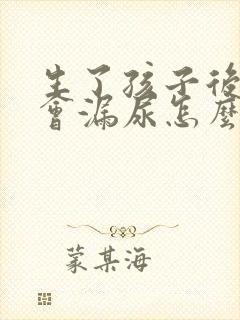 生了孩子後
會漏尿怎麼
蒙某海